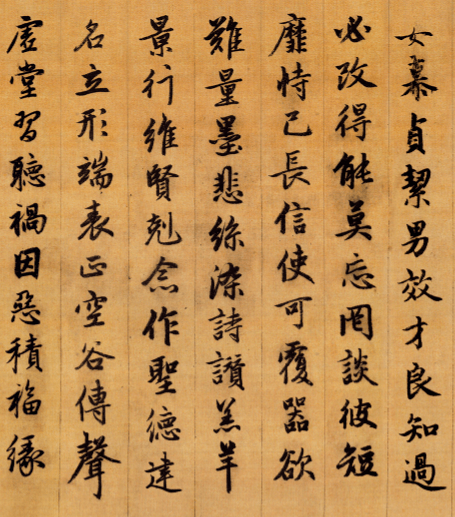 女慕貞絜男效才良知過
必改得能莫忘罔談彼短
靡恃己長信使可覆器欲
難量墨悲絲染詩讃羔羊
景行維賢剋念作聖德建
名立形端表正空谷傳聲
虛堂習聽禍因惡積福緣